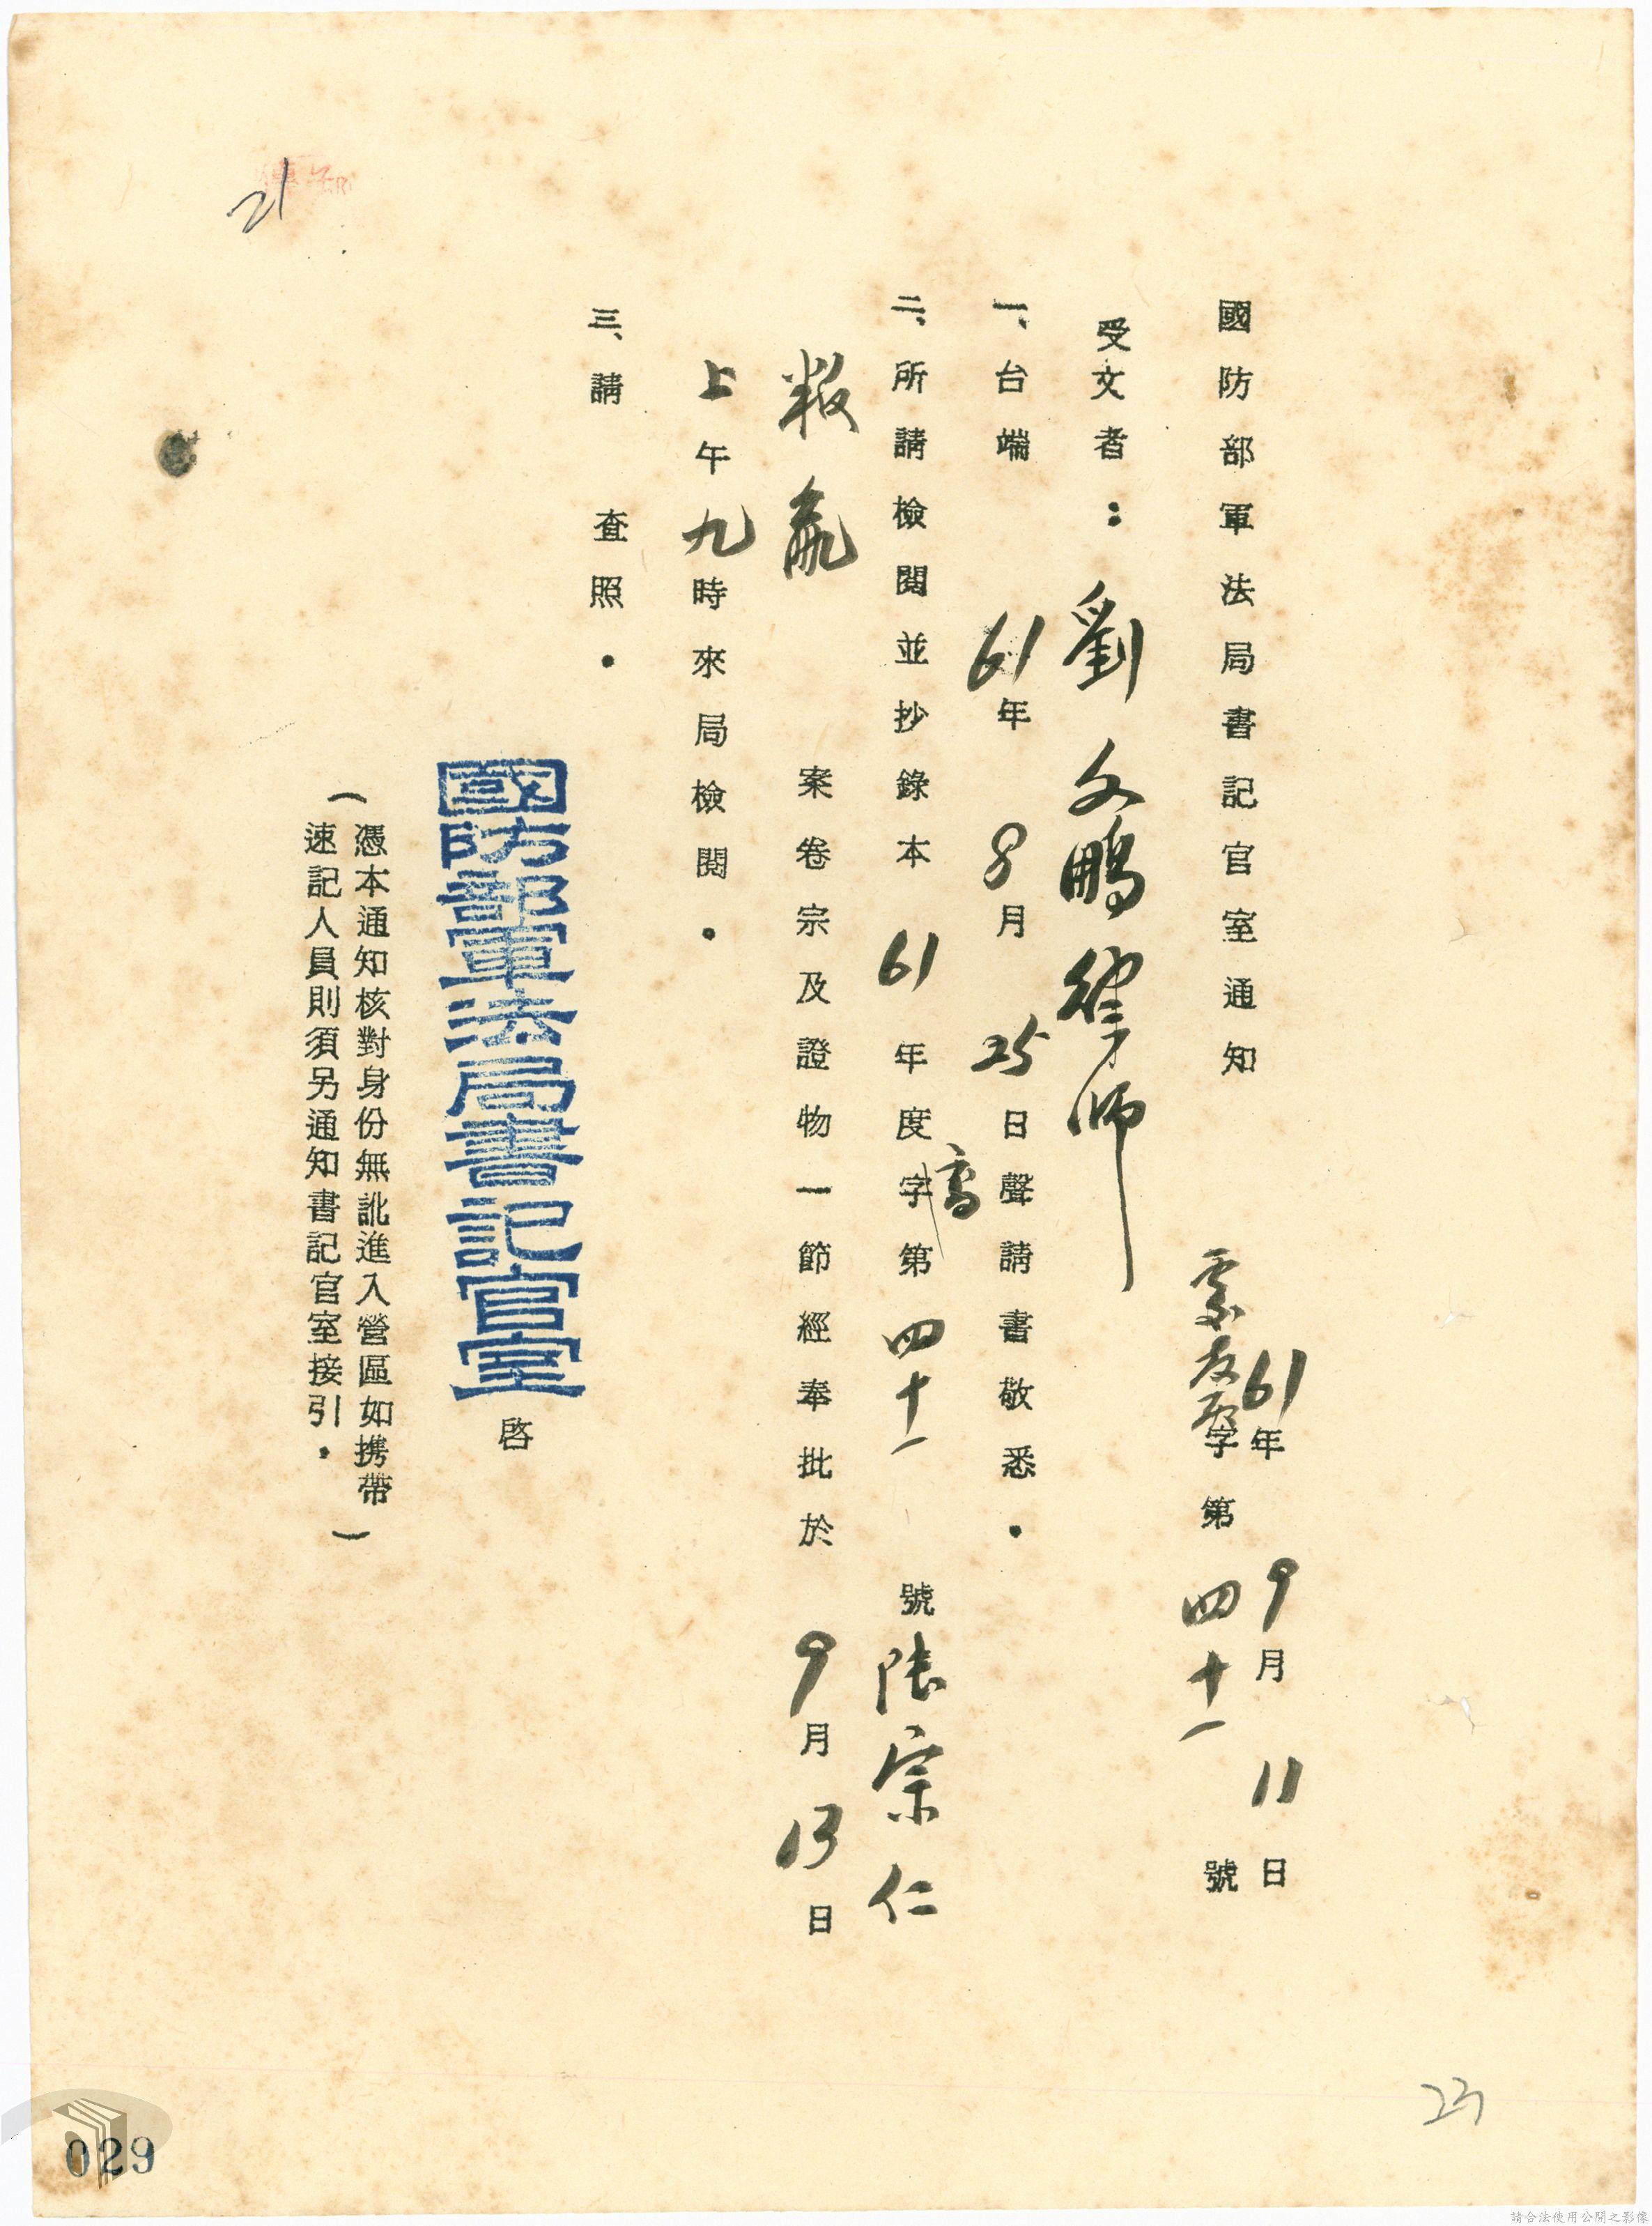 國防部軍法局書記官室通知
61年9月11日
字第四十一號
受文者：劉文鵬律師
一、台端61年8月25日聲請書敬悉．
二、所請檢閱並抄錄本61年度高字第四十一號張宗仁
叛亂案卷宗及證物一節經奉批於9月13日
上午九時來局檢閱．
三、請查照．
國防部軍法局書記官室啓
（憑本通知核對身份無訛進入營區如携帶
速記人員則須另通知書記官室接引．）
21
23
029
請合法使用公開之影像